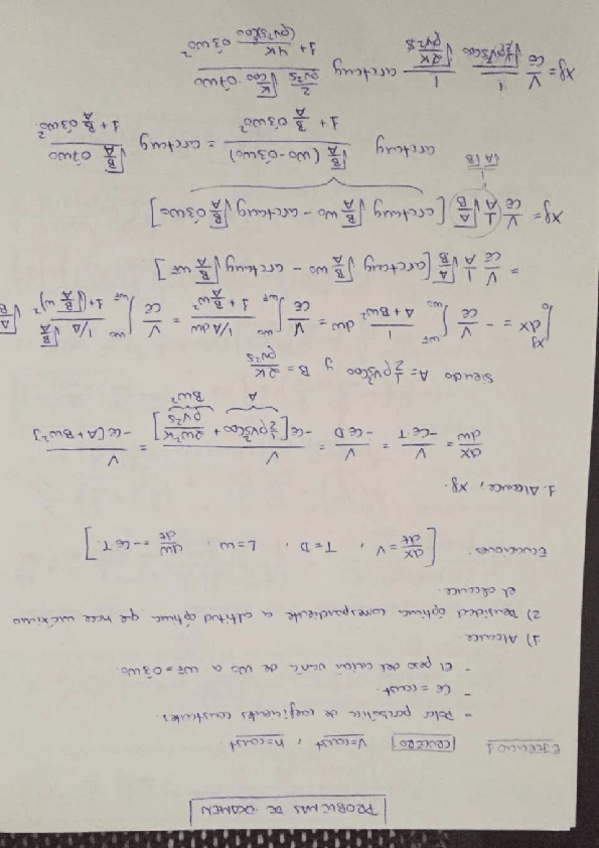 PROBLEMAS DE EXAMEN
EJERCICIO 1 CRUCERO V=const, h=const.
- Polar parabólica de coeficientes constantes.
- CE = const.
- El peso del avión varía de W0 a WF = 0'3W0.
1) Alcance
2) Densidad óptima correspondiente a altitud óptima que hace máximo
el alcance.
Ecuaciones. [dx/dt = V, T=D, L=W, dW/dt = -CE·T]
1. Alcance, xf.
dx/dW = V/(-CE·T) = V/(-CE D) = V/(-CE[½ρV²SCD0 + 2W²K/(ρV²S)]) = V/(-CE[A+BW²])
A BW²
siendo A = ½ρV²SCD0 y B = 2K/(ρV²S)
∫₀^xf dx = - V/CE ∫_W0^WF 1/(A+BW²) dW = V/CE ∫_WF^W0 (1/A dW)/(1 + B/A W²) = V/CE ∫_WF^W0 (1/A)/(1+(√(B/A) W)²) √(B/A) √(A/B)
= V/CE 1/A √(A/B) [arctang √(B/A) W0 - arctang √(B/A) WF]
xf = V/CE 1/A √(A/B) [arctang √(B/A) W0 - arctang √(B/A) 0'3W0]
1/√(AB)
arctang (√(B/A) (W0-0'3W0))/(1 + B/A 0'3W0²) = arctang (√(B/A) 0'7W0)/(1 + B/A 0'3W0²)
xf = V/CE 1/√(½ρV²SCD0) 1/√(2K/(ρV²S)) arctang (2/(ρV²S) √(K/CD0) 0'7W0)/(1 + 4K/((ρV²S)²CD0) 0'3W0²)